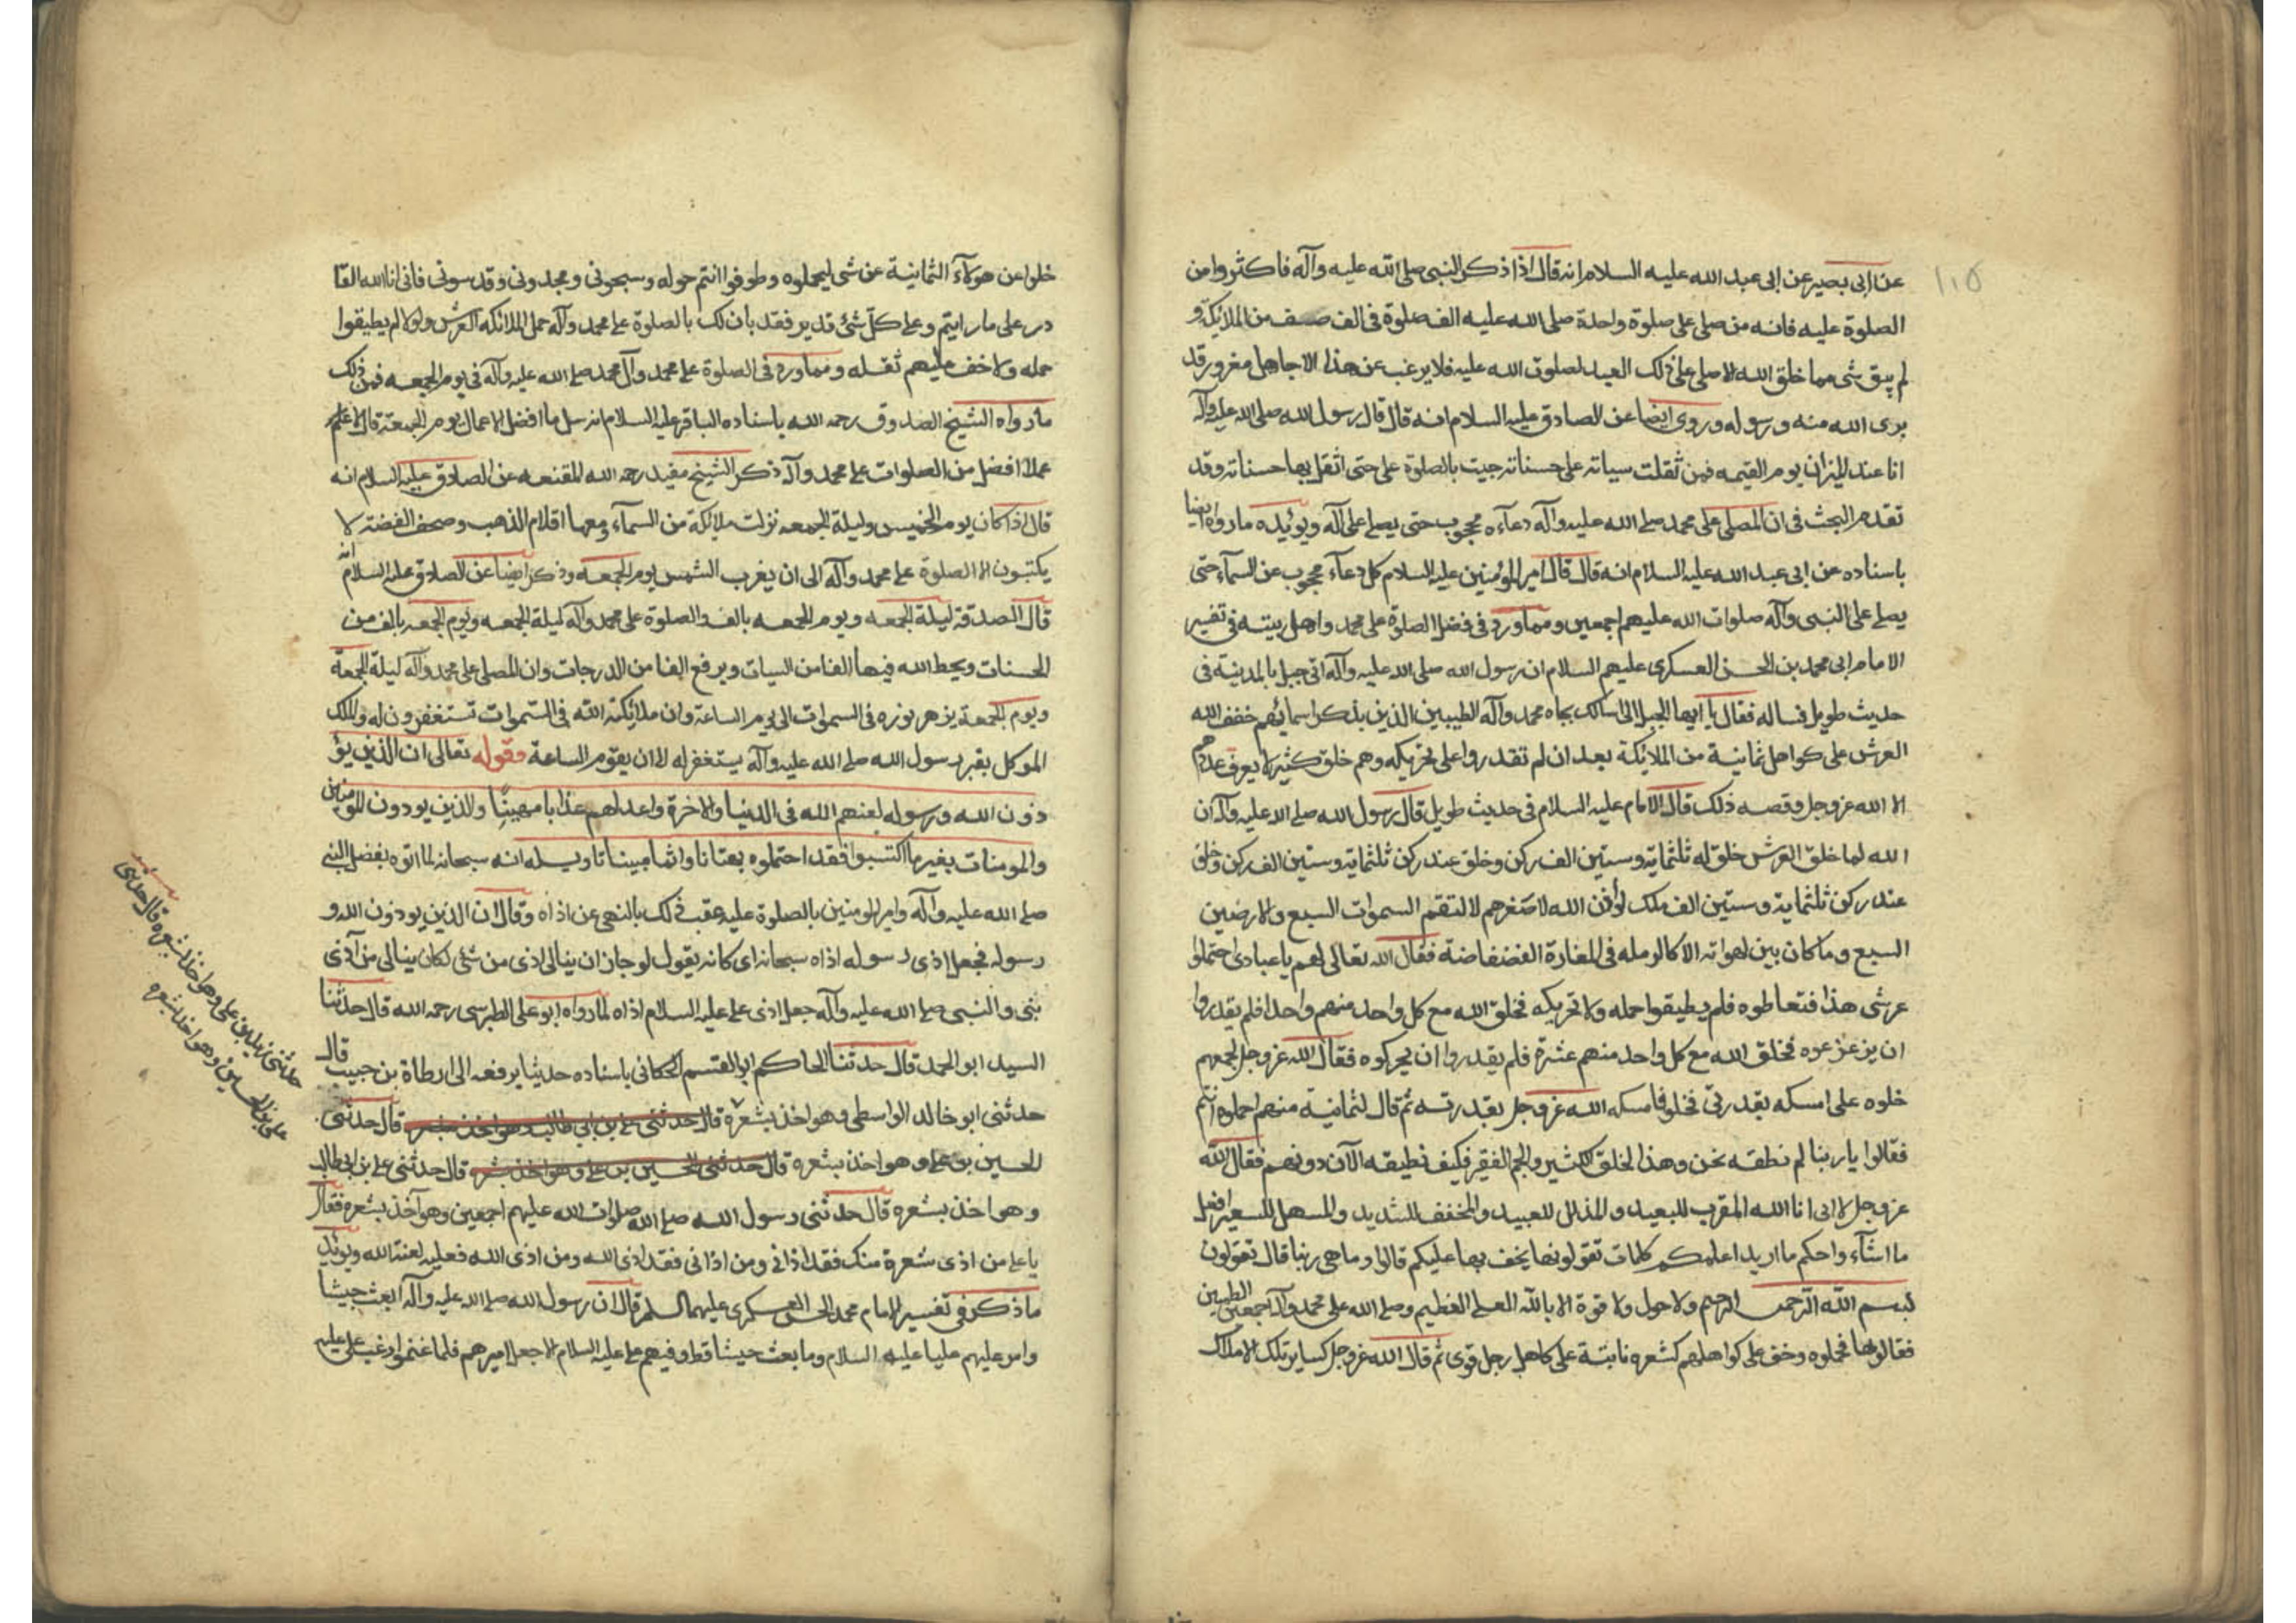 ١٠٥
عن ابى بصير عن ابى عبد الله عليه السلام انه قال اذا ذكر النبى صلى الله عليه وآله فاكثروا من
الصلوة عليه فانه من صلى على صلوة واحدة صلى الله عليه الف صلوة فى الف صف من الملائكة و
لم يبق شى مما خلق الله الا صلى على ذلك العبد لصلوة الله عليه فلا يرغب عن هذا الا جاهل مغرور قد
برى الله منه ورسوله وروى ايضا عن الصادق عليه السلام انه قال قال رسول الله صلى الله عليه وآله
انا عند الميزان يوم القيمه فمن ثقلت سياته على حسناته جيت بالصلوة على حتى اثقل بها حسناته وقد
تقدم البحث فى ان المصلى على محمد صلى الله عليه وآله دعآءه محجوب حتى يصلى على آله ويوئيده ما رواه ايضا
باسناده عن ابى عبد الله عليه السلام انه قال قال امير المؤمنين عليه السلام كل دعآء محجوب عن السمآء حتى
يصلى على النبى وآله صلوات الله عليهم اجمعين ومما ورد فى فضل الصلوة على محمد واهل بيته فى تفسير
الامام ابى محمد بن الحسن العسكرى عليهم السلام ان رسول الله صلى الله عليه وآله اتى جبل بالمدينة فى
حديث طويل فساله فقال يا ايها الجبل انى اسالك بجاه محمد وآله الطيبين الذين بذكر اسمائهم خفف الله
العرش على كواهل ثمانية من الملائكة بعد ان لم تقدروا على تحريكه وهم خلق كثير لا يعرف عددهم
الا الله عز وجل وقصه ذلك قال الامام عليه السلام فى حديث طويل قال رسول الله صلى الله عليه وآله ان
الله لما خلق العرش خلق له ثلثماية وستين الف ركن وخلق عند ركن ثلثماية وستين الف ركن وخلق
عند ركن ثلثماية وستين الف ملك لو أذن الله لاصغرهم لالتقم السموات السبع والارضين
السبع وما كان بين لهواته الا كالرمله فى المفازة الفضفاضة فقال الله تعالى لهم يا عبادى احتملوا
عرشى هذا فتعاطوه فلم يطيقوا حمله ولا تحريكه فخلق الله مع كل واحد منهم واحدا فلم يقدروا
ان يزعزعوه فخلق الله مع كل واحد منهم عشرة فلم يقدروا ان يحركوه فقال الله عز وجل لجميعهم
خلوه على امسكه بقدرتى فخلوه فامسكه الله عز وجل بقدرته ثم قال لثمانية منهم احملوه انتم
فقالوا يا ربنا لم نطقه نحن وهذا الخلق الكثير والجم الغفير فكيف نطيقه الآن دونهم فقال الله
عز وجل لانى انا الله المقرب للبعيد والمذلل للعبيد والمخفف للشديد والمسهل للعسير افعل
ما اشآء واحكم ما اريد اعلمكم كلمات تقولونها يخف بها عليكم قالوا وما هى ربنا قال تقولون
بسم الله الرحمن الرحيم ولا حول ولا قوة الا بالله العلى العظيم وصلى الله على محمد وآله اجمعين الطيبين
فقالوها فحملوه وخف على كواهلهم كشعره نابتة على كاهل رجل قوى ثم قال الله عز وجل لساير تلك الاملاك
خلوا عن هؤلآء الثمانية عن شى ليحملوه وطوفوا انتم حوله وسبحونى ومجدونى وقدسونى فانى انا الله القا
در على ما رايتم وعلى كل شئ قدير فقد بان لك بالصلوة على محمد وآله حمل الملائكه العرش ولولا لم يطيقوا
حمله ولا خف عليهم ثقله ومما ورد فى الصلوة على محمد وآل محمد صلى الله عليه وآله فى يوم الجمعه فمن ذلك
ما رواه الشيخ الصدوق رحمه الله باسناده الباقر عليه السلام انه سل ما افضل الاعمال يوم الجمعة قال لا اعلم
عملا افضل من الصلوات على محمد وآله ذكر الشيخ مفيد رحمه الله المقنعه عن الصادق عليه السلام انه
قال اذا كان يوم الخميس وليلة الجمعه نزلت ملائكة من السمآء ومعها اقلام الذهب وصحف الفضة لا
يكتبون الا الصلوة على محمد وآله الى ان يغرب الشمس يوم الجمعه وذكر ايضا عن الصادق عليه السلام انه
قال الصدقة ليلة الجمعه ويوم الجمعه بالف والصلوة على محمد وآله ليلة الجمعه ويوم الجمعه بالف من
الحسنات ويحط الله فيها الفا من السيات ويرفع الفا من الدرجات وان المصلى على محمد وآله ليلة الجمعة
ويوم الجمعة يزهر نوره فى السموات الى يوم الساعة وان ملائكة الله فى السموات تستغفرون له والملك
الموكل بقبر رسول الله صلى الله عليه وآله يستغفر له الى ان يقوم الساعة وقوله تعالى ان الذين يؤ
ذون الله ورسوله لعنهم الله فى الدنيا والاخرة واعد لهم عذابا مهينا والذين يوذون المومنين
والمومنات بغير ما اكتسبوا فقد احتملوا بهتانا واثما مبينا تاويله انه سبحانه لما اتوه بفضل النبى
صلى الله عليه وآله وامر المومنين بالصلوة عليه عقب ذلك بالنهى عن اذاه وقال ان الذين يوذون الله و
رسوله فجعل اذى رسوله اذاه سبحانه اى كانه يقول لو جاز ان ينالى اذى من شئ لكان ينالى من آذى
نبى والنبى صلى الله عليه وآله جعل اذى على عليه السلام اذاه لما رواه ابو على الطبرسى رحمه الله قال حدثنا
السيد ابو الحمد قال حدثنا الحاكم ابو القسم الحكانى باسناده حديثا يرفعه الى ارطاة بن حبيب قال
حدثنى ابو خالد الواسطى وهو اخذ بشعره قال حدثنى على بن ابى طالب وهو اخذ بشعره قال حدثنى
الحسين بن على وهو اخذ بشعره قال حدثنى الحسين بن على وهو اخذ بشعره قال حدثنى على بن ابى طالب
وهو اخذ بشعره قال حدثنى رسول الله صلى الله صلوات الله عليهم اجمعين وهو آخذ بشعره فقال
يا على من اذى شعرة منك فقد اذانى ومن اذانى فقد اذى الله ومن اذى الله فعليه لعنة الله ويوئيد
ما ذكر فى تفسير الامام محمد الحسن العسكرى عليهما السلم قال ان رسول الله صلى الله عليه وآله ابعث جيشا
وامر عليهم عليا عليه السلام وما بعث جيشا قط وفيهم على عليه السلام الا جعل اميرهم فلما غنموا رغب على عليه
حدثنى زيد بن على وهو اخذ بشعره قال حدثنى
على بن الحسين وهو اخذ بشعره